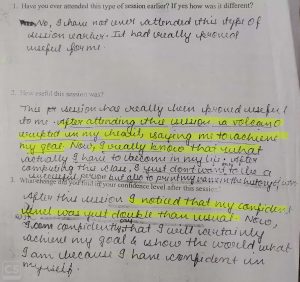 1. Have you ever attended this type of session earlier? If yes how was it different?
No, I have not ever attended this type of
session earlier. It had really proved
useful for me.
2. How useful this session was?
This session has really been proved useful
to me. After attending this session, a volcano
erupted in my head, saying me to achieve
my goal. Now, I really know that what
actually I have to become in my life. After
completing this class, I just don't want to be a
successful person but also to my name in the history of
3. What change did you find in your confidence level after this session?
After this session I noticed that my confident
level was just double than usual. Now,
I can confidently say that I will certainly
achieve my goal & show the world what
I am because I have confident in
myself.
CS